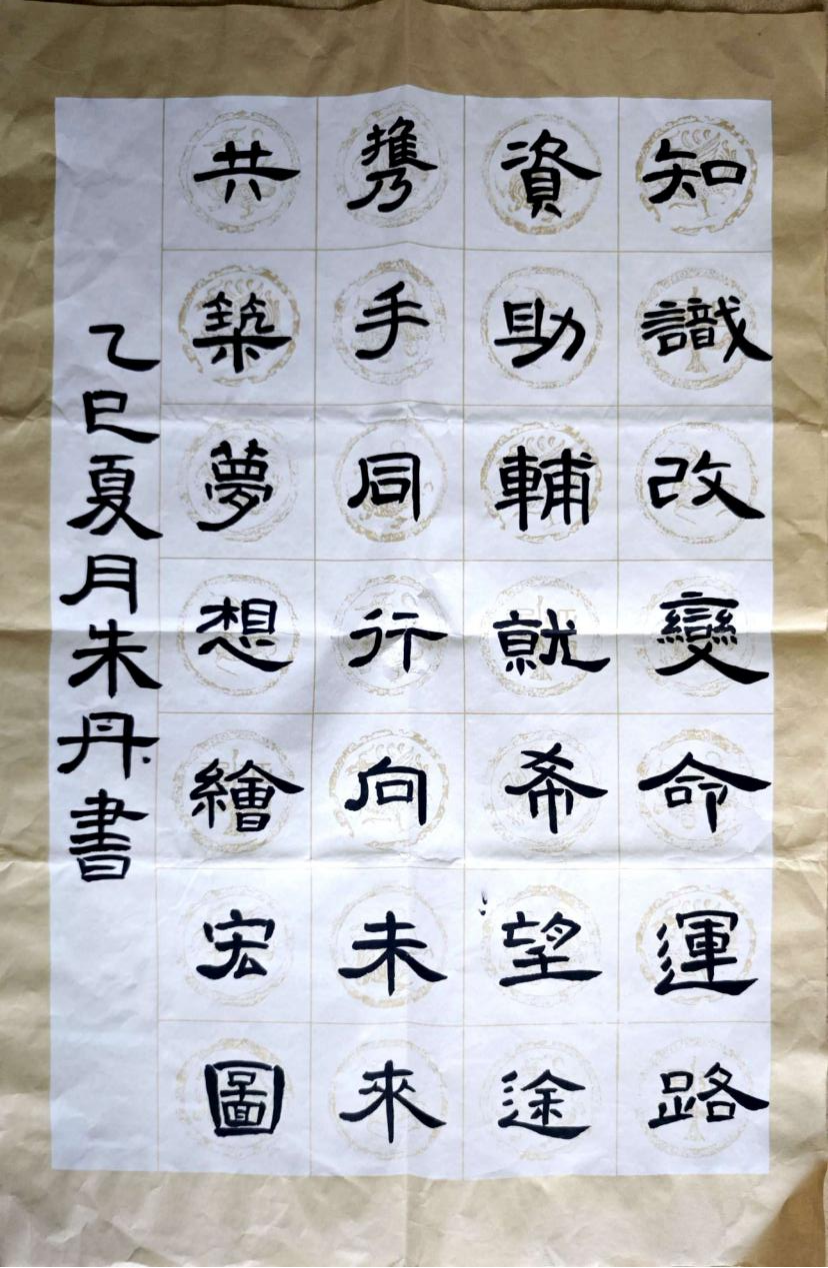 知識改變命運路
資助輔就希望途
携手同行向未來
共築夢想繪宏圖
乙巳夏月朱丹書